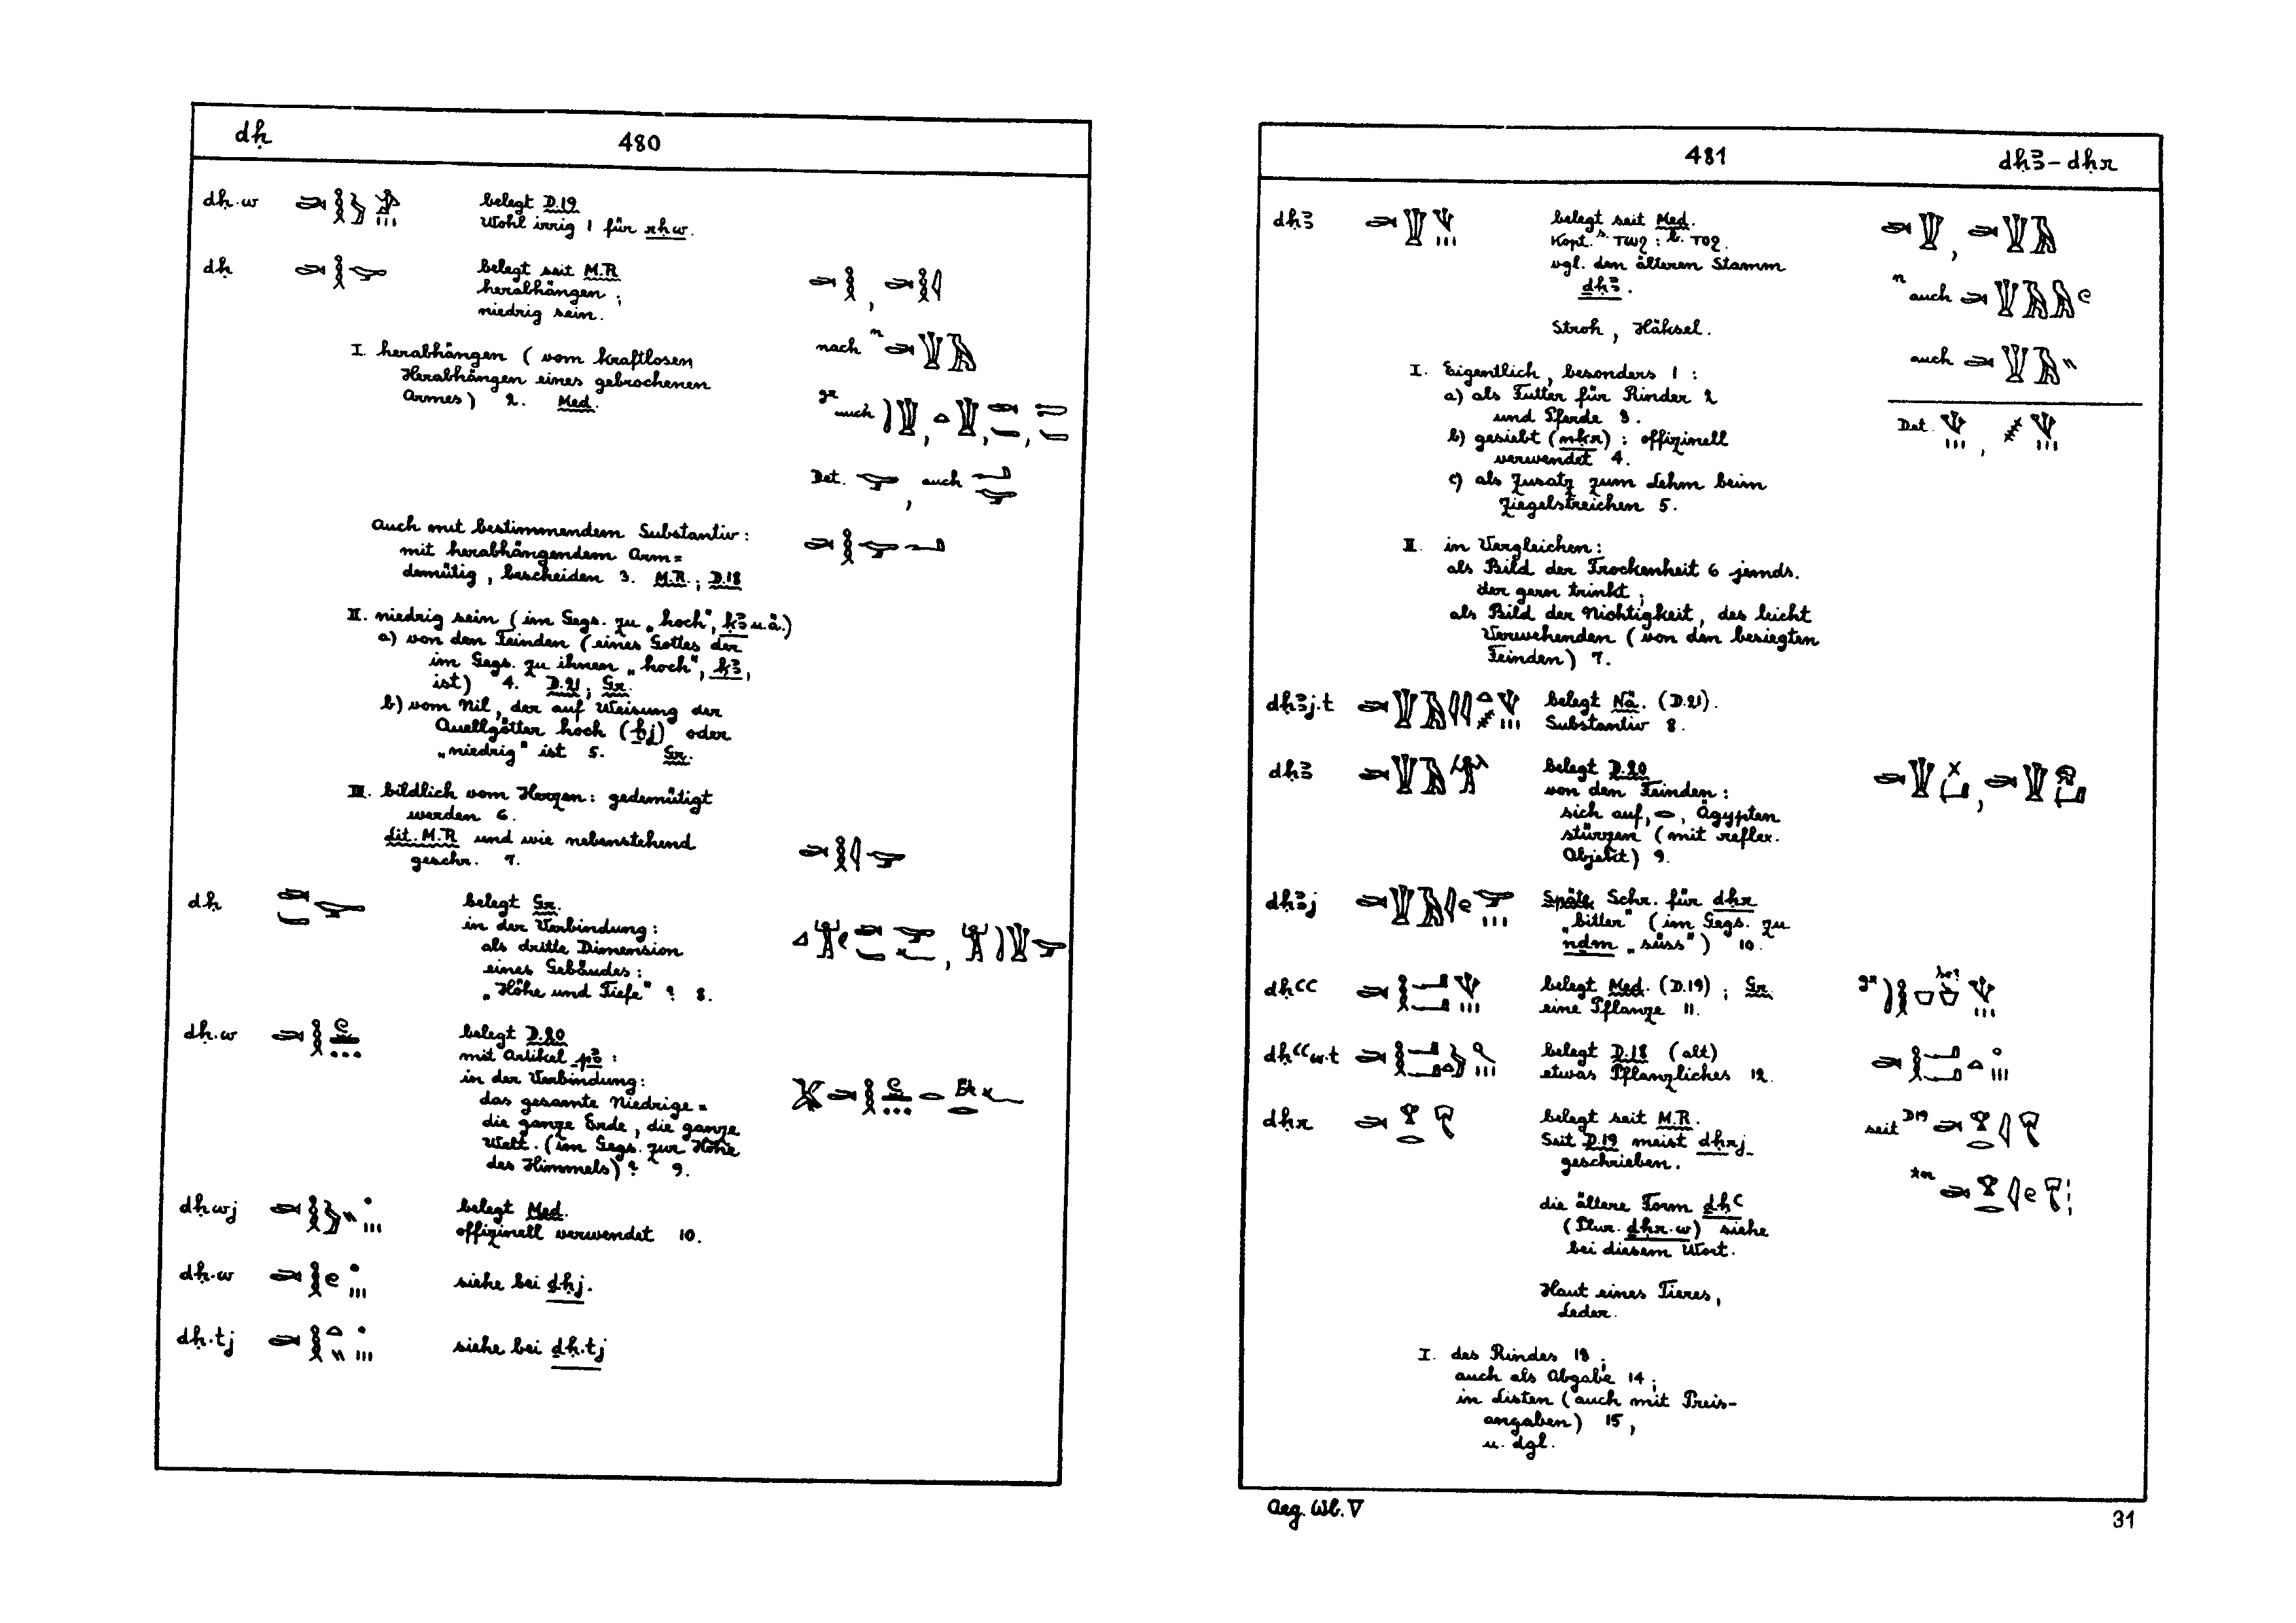 dḥ 480
dḥ.w belegt D.19
Wohl irrig 1 für rḥw.
dḥ belegt seit M.R
herabhängen ;
niedrig sein.
nach n
I. herabhängen ( vom kraftlosen
Herabhängen eines gebrochenen
Armes) 2. Med.
gr auch
Det. , auch
Auch mit bestimmendem Substantiv:
mit herabhängendem Arm =
demütig , bescheiden 3. M.R. ; D.18
II. niedrig sein ( im Gegs. zu „hoch", ḳꜣ u.ä.)
a) von den Feinden ( eines Gottes der
im Gegs. zu ihnen „hoch", ḳꜣ,
ist) 4. D.21 ; Gr.
b) vom Nil, der auf Weisung der
Quellgötter hoch ( ) oder
„niedrig" ist 5. Gr.
III. bildlich vom Herzen: gedemütigt
werden 6.
Lit. M.R und wie nebenstehend
geschr. 7.
dḥ belegt Gr.
in der Verbindung:
als dritte Dimension
eines Gebäudes:
„Höhe und Tiefe" ? 8.
dḥ.w belegt D.20
mit Artikel pꜣ :
in der Verbindung:
das gesamte Niedrige =
die ganze Erde, die ganze
Welt. (im Gegs. zur Höhe
des Himmels) ? 9.
dḥwj belegt Med.
offizinell verwendet 10.
dḥ.w siehe bei ḏḥj.
dḥ.tj siehe bei ḏḥ.tj
481 dḥꜣ - dḥr
dḥꜣ belegt seit Med.
Kopt. s. ⲧⲱϩ : b. ⲧⲟϩ.
vgl. den älteren Stamm
ḏḥꜣ.
n auch
Stroh , Häksel.
auch
I. Eigentlich, besonders 1 :
a) als Futter für Rinder 2
und Pferde 3.
Det.
b) gesiebt (nḳr) : offizinell
verwendet 4.
c) als Zusatz zum Lehm beim
Ziegelstreichen 5.
II. in Vergleichen:
als Bild der Trockenheit 6 jemds.
der gern trinkt ;
als Bild der Nichtigkeit, des leicht
Verwehenden ( von den besiegten
Feinden) 7.
dḥꜣj.t belegt Nä. (D.21).
Substantiv 8.
dḥꜣ belegt D.20
von den Feinden :
sich auf, 𓂋, Ägypten
stürzen ( mit reflex.
Objekt) 9.
dḥꜣj Späte Schr. für dḥr
„bitter" ( im Gegs. zu
nḏm „süss") 10.
dḥꜥꜥ belegt Med. (D.19) ; Gr.
eine Pflanze 11.
gr so?
dḥꜥꜥw.t belegt D.18 (alt)
etwas Pflanzliches 12.
dḥr belegt seit M.R.
Seit D.19 meist dḥrj
geschrieben.
seit D19
die ältere Form ḏḥꜥ
( Plur. ḏḥr.w) siehe
bei diesem Wort.
Haut eines Tieres,
Leder.
I. des Rindes 13 ;
auch als Abgabe 14 ;
in Listen ( auch mit Preis-
angaben) 15,
u. dgl.
Aeg. Wb. V 31